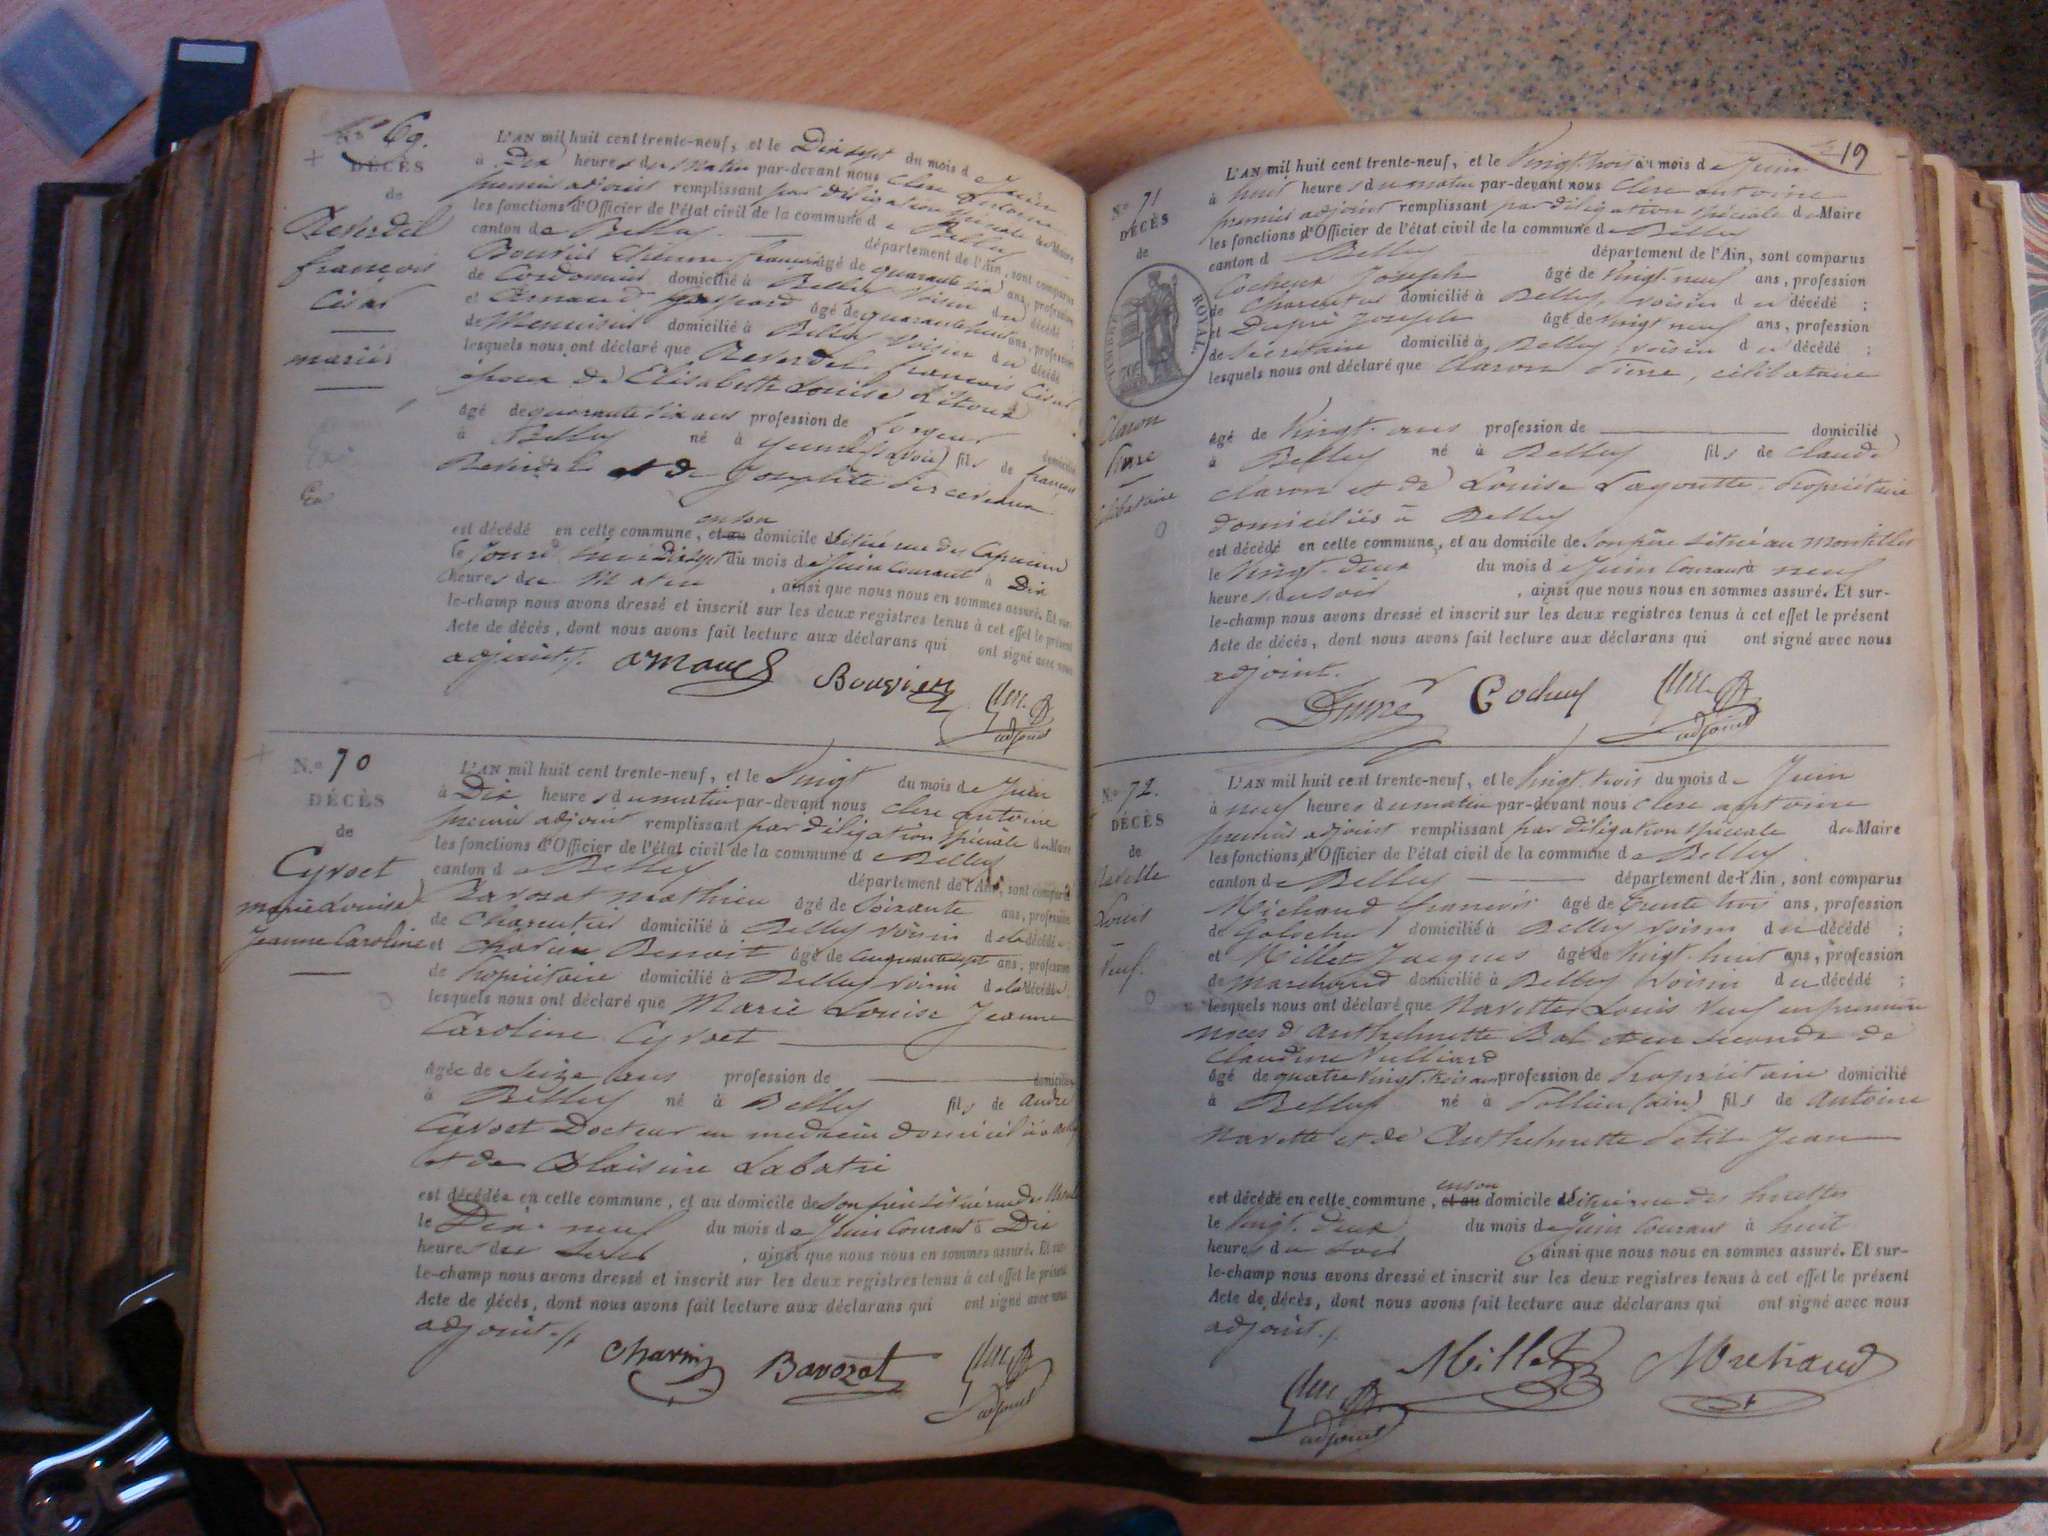 No 69.
DÉCÈS
de
Reverdel
françois
César
mariés
L'AN mil huit cent trente-neuf, et le Dix sept du mois de Juin
à Dix heures du matin par-devant nous Clerc antoine
premier adjoint remplissant par déligation spéciale du Maire
les fonctions d'Officier de l'état civil de la commune de Belley
canton de Belley département de l'Ain, sont comparus
Bouvier Etienne françois âgé de quarante six ans, profession
de Cordonnier domicilié à Belley voisin du décédé ;
et Arnaud Gaspard âgé de quarante huit ans, profession
de Menuisier domicilié à Belley voisin du décédé
lesquels nous ont déclaré que Reverdel françois César
époux de Elisabeth Louise
âgé de quarante six ans profession de domicilié
à Belley né à (Savoie) fils de françois
Reverdel et de
est décédé en cette commune, en son et au domicile situé rue des Capucins
le Jourd'hui dix sept du mois de Juin Courant à Dix
heures du Matin , ainsi que nous nous en sommes assuré. Et sur-
le-champ nous avons dressé et inscrit sur les deux registres tenus à cet effet le présent
Acte de décès, dont nous avons fait lecture aux déclarans qui ont signé avec nous
adjoint./.
arnaud Bouvier Clerc
adjoint
No 70
DÉCÈS
de
Cyvoct
marie Louise
Jeanne Caroline
L'AN mil huit cent trente-neuf, et le Vingt du mois de Juin
à Dix heures du matin par-devant nous Clerc antoine
premier adjoint remplissant par déligation spéciale du Maire
les fonctions d'Officier de l'état civil de la commune de Belley
canton de Belley département de l'Ain, sont comparus
Bavozat Mathieu âgé de Soixante ans, profession
de Charpentier domicilié à Belley voisin de la décédée ;
et Charvin Benoit âgé de Cinquante sept ans, profession
de Propriétaire domicilié à Belley voisin de la décédée
lesquels nous ont déclaré que Marie Louise Jeanne
Caroline Cyvoct
âgée de Seize ans profession de domicilié
à Belley né à Belley fils de André
Cyvoct Docteur en médecin domicilié à Belley
et de Blaisine Labatie
est décédée en cette commune, et au domicile de son père situé rue des
le Dix-neuf du mois de Juin Courant à Dix
heures du , ainsi que nous nous en sommes assuré. Et sur-
le-champ nous avons dressé et inscrit sur les deux registres tenus à cet effet le présent
Acte de décès, dont nous avons fait lecture aux déclarans qui ont signé avec nous
adjoint./.
Charvin Bavozat Clerc
adjoint
19
No 71
DÉCÈS
de
TIMBRE ROYAL
Claron
Pierre
célibataire
L'AN mil huit cent trente-neuf, et le Vingt-trois du mois de Juin
à huit heures du matin par-devant nous Clerc antoine
premier adjoint remplissant par déligation spéciale du Maire
les fonctions d'Officier de l'état civil de la commune de Belley
canton d Belley département de l'Ain, sont comparus
Cocheux Joseph âgé de Vingt-neuf ans, profession
de Charcutier domicilié à Belley, voisin du décédé ;
et Dupré Joseph âgé de Vingt neuf ans, profession
de Secrétaire domicilié à Belley, voisin du décédé ;
lesquels nous ont déclaré que Claron Pierre, célibataire
âgé de Vingt-ans profession de domicilié
à Belley né à Belley fils de Claude
Claron et de Louise Lagoutte propriétaire
domiciliés à Belley
est décédé en cette commune, et au domicile de son père situé au Montillet
le Vingt-deux du mois de Juin Courant à neuf
heures du soir , ainsi que nous nous en sommes assuré. Et sur-
le-champ nous avons dressé et inscrit sur les deux registres tenus à cet effet le présent
Acte de décès, dont nous avons fait lecture aux déclarans qui ont signé avec nous
adjoint.
Dupré Cocheux Clerc
adjoint
No 72.
DÉCÈS
de
Navette
Louis
Veuf.
L'AN mil huit cent trente-neuf, et le Vingt-trois du mois de Juin
à neuf heures du matin par-devant nous Clerc antoine
premier adjoint remplissant par déligation spéciale du Maire
les fonctions d'Officier de l'état civil de la commune de Belley
canton de Belley département de l'Ain, sont comparus
Michaud françois âgé de trente trois ans, profession
de Galocher domicilié à Belley voisin du décédé ;
et Millet Jacques âgé de Vingt-huit ans, profession
de Marchand domicilié à Belley voisin du décédé ;
lesquels nous ont déclaré que Navette Louis Veuf en première
noces d'Anthelmette Bal et en seconde de
Claudine Vulliard
âgé de quatre Vingt-trois ans profession de Propriétaire domicilié
à Belley né à Pollieu (ain) fils de Antoine
Navette et de Anthelmette Petit-Jean
est décédé en cette commune, en son et au domicile situé rue des
le Vingt-deux du mois de Juin Courant à huit
heures du soir , ainsi que nous nous en sommes assuré. Et sur-
le-champ nous avons dressé et inscrit sur les deux registres tenus à cet effet le présent
Acte de décès, dont nous avons fait lecture aux déclarans qui ont signé avec nous
adjoint./.
Clerc Millet Michaud
adjoint